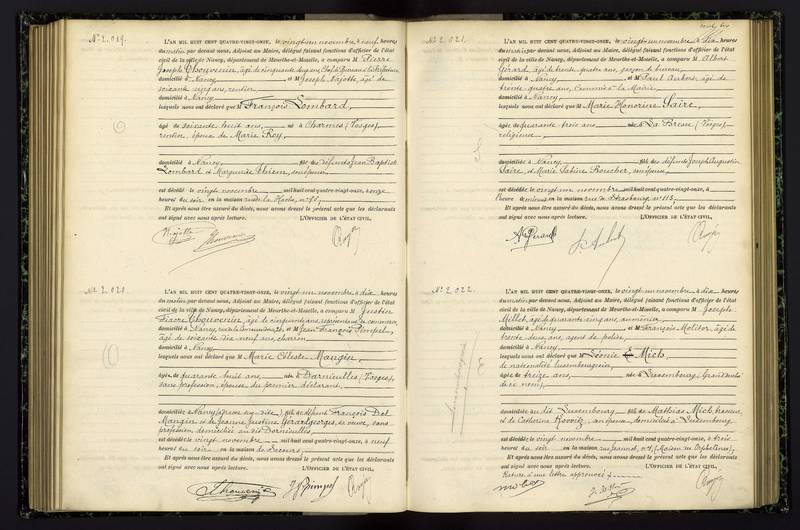 Nº 2.019.
L'AN MIL HUIT CENT QUATRE-VINGT-ONZE, le vingt un novembre, à neuf heures
du matin par devant nous, Adjoint au Maire, délégué faisant fonctions d'officier de l'état
civil de la ville de Nancy, département de Meurthe-et-Moselle, a comparu M Pierre
Joseph Thouvenin, âgé de cinquante
domicilié à Nancy et M Joseph Najotte, âgé de
soixante cinq ans, rentier,
domicilié à Nancy
lesquels nous ont déclaré que M François Lombard,
âgé de soixante huit ans, né à Charmes (Vosges),
rentier, époux de Marie Roy,
domicilié à Nancy fils des défunts Jean Baptiste
Lombard et Marguerite Thiem, son épouse
est décédé le vingt novembre mil huit cent quatre-vingt-onze, à onze
heures du soir en la maison rue de la Hache, nº 90.
Et après nous être assuré du décès, nous avons dressé le présent acte que les déclarants
ont signé avec nous après lecture. L'OFFICIER DE L'ÉTAT CIVIL,
Najotte
Nº 2.020.
L'AN MIL HUIT CENT QUATRE-VINGT-ONZE, le vingt un novembre, à dix heures
du matin par devant nous, Adjoint au Maire, délégué faisant fonctions d'officier de l'état
civil de la ville de Nancy, département de Meurthe-et-Moselle, a comparu M Justin
Thouvenin, âgé de cinquante ans, représentant de commerce,
domicilié à Nancy, et M Jean François Pimpel,
âgé de soixante dix neuf ans, charron
domicilié à Nancy
lesquels nous ont déclaré que M Marie Céleste Mangin
âgée de quarante huit ans, née à Darnieulles (Vosges),
sans profession, épouse du premier déclarant,
domiciliée à Nancy fille de défunt François Del
Mangin et de Jeanne Justine Gérardgeorges, sa veuve, sans
profession, domiciliée au dit Darnieulles,
est décédée le vingt novembre mil huit cent quatre-vingt-onze, à neuf
heures du soir en la maison de Secours,
Et après nous être assuré du décès, nous avons dressé le présent acte que les déclarants
ont signé avec nous après lecture. L'OFFICIER DE L'ÉTAT CIVIL,
Thouvenin JF Pimpel
Nº 2.021.
L'AN MIL HUIT CENT QUATRE-VINGT-ONZE, le vingt un novembre à dix heures
du matin par devant nous, Adjoint au Maire, délégué faisant fonctions d'officier de l'état
civil de la ville de Nancy, département de Meurthe-et-Moselle, a comparu M Albert
Gérard, âgé de trente quatre ans, garçon de bureau
domicilié à Nancy et M Paul Aubert, âgé de
trente quatre ans, Commis à la Mairie,
domicilié à Nancy
lesquels nous ont déclaré que M Marie Honorine Faire,
âgée de quarante trois ans née à La Bresse (Vosges),
religieuse,
domiciliée à Nancy fille des défunts Joseph Augustin
Faire et Marie Sabine Poircher, son épouse,
est décédée le vingt un novembre mil huit cent quatre-vingt-onze, à
en la maison rue de Strasbourg nº 113,
Et après nous être assuré du décès, nous avons dressé le présent acte que les déclarants
ont signé avec nous après lecture. L'OFFICIER DE L'ÉTAT CIVIL,
A. Gérard P. Aubert
Nº 2.022.
L'AN MIL HUIT CENT QUATRE-VINGT-ONZE, le vingt un novembre à dix heures
du matin par devant nous, Adjoint au Maire, délégué faisant fonctions d'officier de l'état
civil de la ville de Nancy, département de Meurthe-et-Moselle, a comparu M Joseph
Millet, âgé de quarante cinq ans, armurier
domicilié à Nancy et M François Molitor, âgé de
trente deux ans, agent de police,
domicilié à Nancy
lesquels nous ont déclaré que M Léonie Mich,
de nationalité luxembourgeoise,
âgée de treize ans, née à Luxembourg (Grand duché
de ce nom),
domiciliée au dit Luxembourg fille de Mathias Mich, brasseur
et de Catherine Kowitz, son épouse, domiciliés à Luxembourg
est décédée le vingt novembre mil huit cent quatre-vingt-onze, à trois
heures du soir en la maison rue Jeannot, nº 4 (Maison des Orphelines),
Et après nous être assuré du décès, nous avons dressé le présent acte que les déclarants
ont signé avec nous après lecture. L'OFFICIER DE L'ÉTAT CIVIL,
Rature à une lettre approuvée